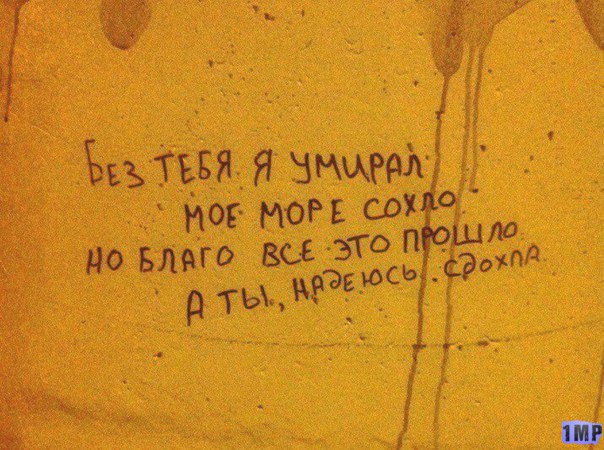 Без ТЕБЯ Я УМИРАЛ
МОЕ МОРЕ СОХЛО
НО БЛАГО ВСЕ ЭТО ПРОШЛО
А ТЫ, НАДЕЮСЬ, СДОХЛА
1MP